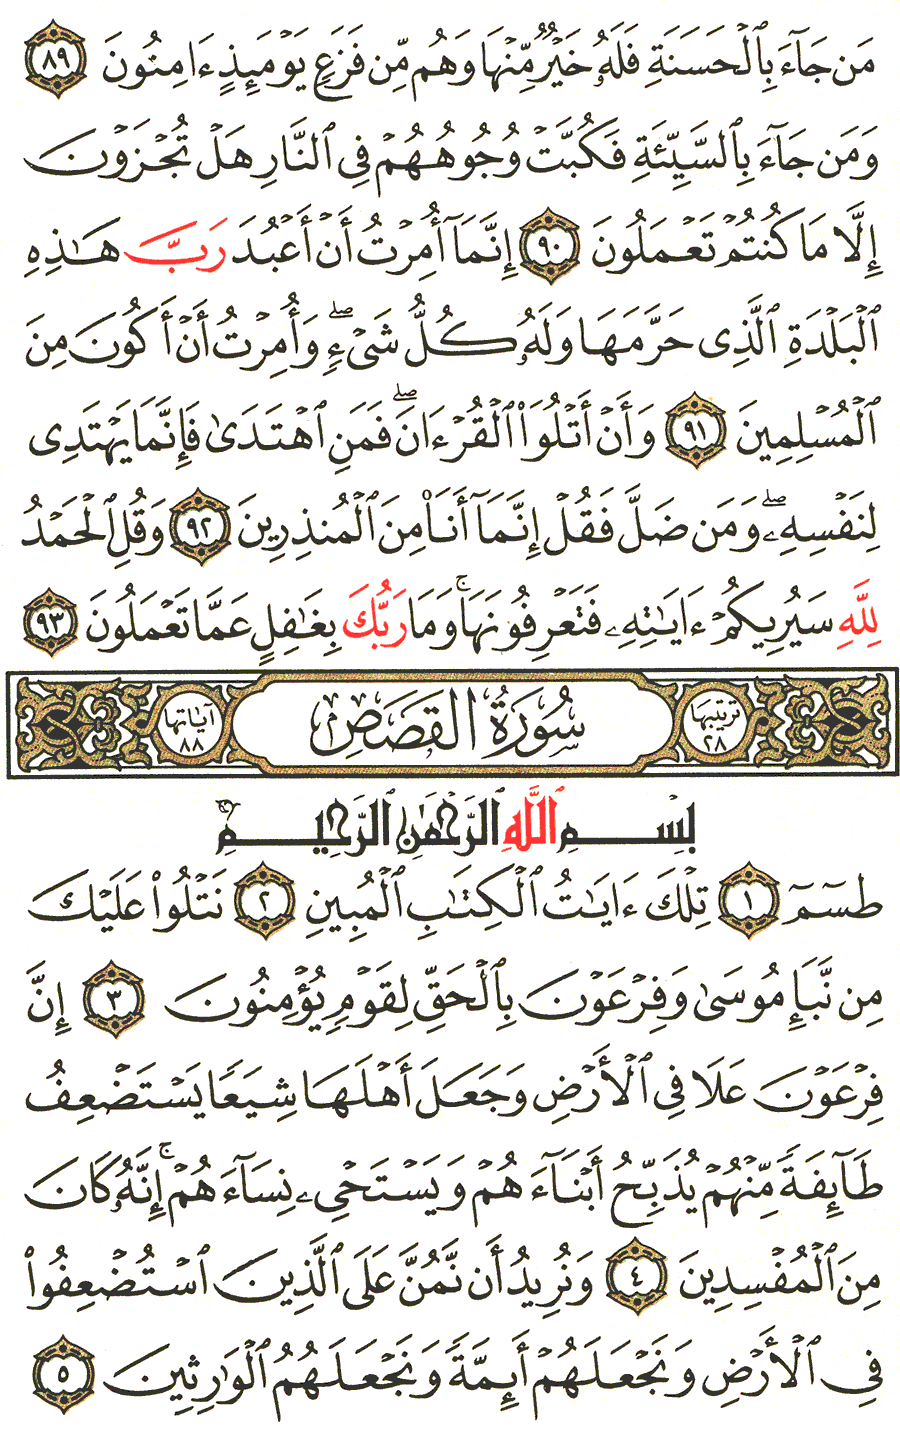 مَن جَآءَ بِٱلْحَسَنَةِ فَلَهُۥ خَيْرٌ مِّنْهَا وَهُم مِّن فَزَعٍ يَوْمَئِذٍ ءَامِنُونَ ٨٩
وَمَن جَآءَ بِٱلسَّيِّئَةِ فَكُبَّتْ وُجُوهُهُمْ فِى ٱلنَّارِ هَلْ تُجْزَوْنَ
إِلَّا مَا كُنتُمْ تَعْمَلُونَ ٩٠ إِنَّمَآ أُمِرْتُ أَنْ أَعْبُدَ رَبَّ هَٰذِهِ
ٱلْبَلْدَةِ ٱلَّذِى حَرَّمَهَا وَلَهُۥ كُلُّ شَىْءٍۖ وَأُمِرْتُ أَنْ أَكُونَ مِنَ
ٱلْمُسْلِمِينَ ٩١ وَأَنْ أَتْلُوَا۟ ٱلْقُرْءَانَۖ فَمَنِ ٱهْتَدَىٰ فَإِنَّمَا يَهْتَدِى
لِنَفْسِهِۦۖ وَمَن ضَلَّ فَقُلْ إِنَّمَآ أَنَا۠ مِنَ ٱلْمُنذِرِينَ ٩٢ وَقُلِ ٱلْحَمْدُ
لِلَّهِ سَيُرِيكُمْ ءَايَٰتِهِۦ فَتَعْرِفُونَهَاۚ وَمَا رَبُّكَ بِغَٰفِلٍ عَمَّا تَعْمَلُونَ ٩٣
ترتيبها ٢٨ سُورَةُ القَصَصِ آياتها ٨٨
بِسْمِ ٱللَّهِ ٱلرَّحْمَٰنِ ٱلرَّحِيمِ
طسٓمٓ ١ تِلْكَ ءَايَٰتُ ٱلْكِتَٰبِ ٱلْمُبِينِ ٢ نَتْلُوا۟ عَلَيْكَ
مِن نَّبَإِ مُوسَىٰ وَفِرْعَوْنَ بِٱلْحَقِّ لِقَوْمٍ يُؤْمِنُونَ ٣ إِنَّ
فِرْعَوْنَ عَلَا فِى ٱلْأَرْضِ وَجَعَلَ أَهْلَهَا شِيَعًا يَسْتَضْعِفُ
طَآئِفَةً مِّنْهُمْ يُذَبِّحُ أَبْنَآءَهُمْ وَيَسْتَحْىِۦ نِسَآءَهُمْۚ إِنَّهُۥ كَانَ
مِنَ ٱلْمُفْسِدِينَ ٤ وَنُرِيدُ أَن نَّمُنَّ عَلَى ٱلَّذِينَ ٱسْتُضْعِفُوا۟
فِى ٱلْأَرْضِ وَنَجْعَلَهُمْ أَئِمَّةً وَنَجْعَلَهُمُ ٱلْوَٰرِثِينَ ٥